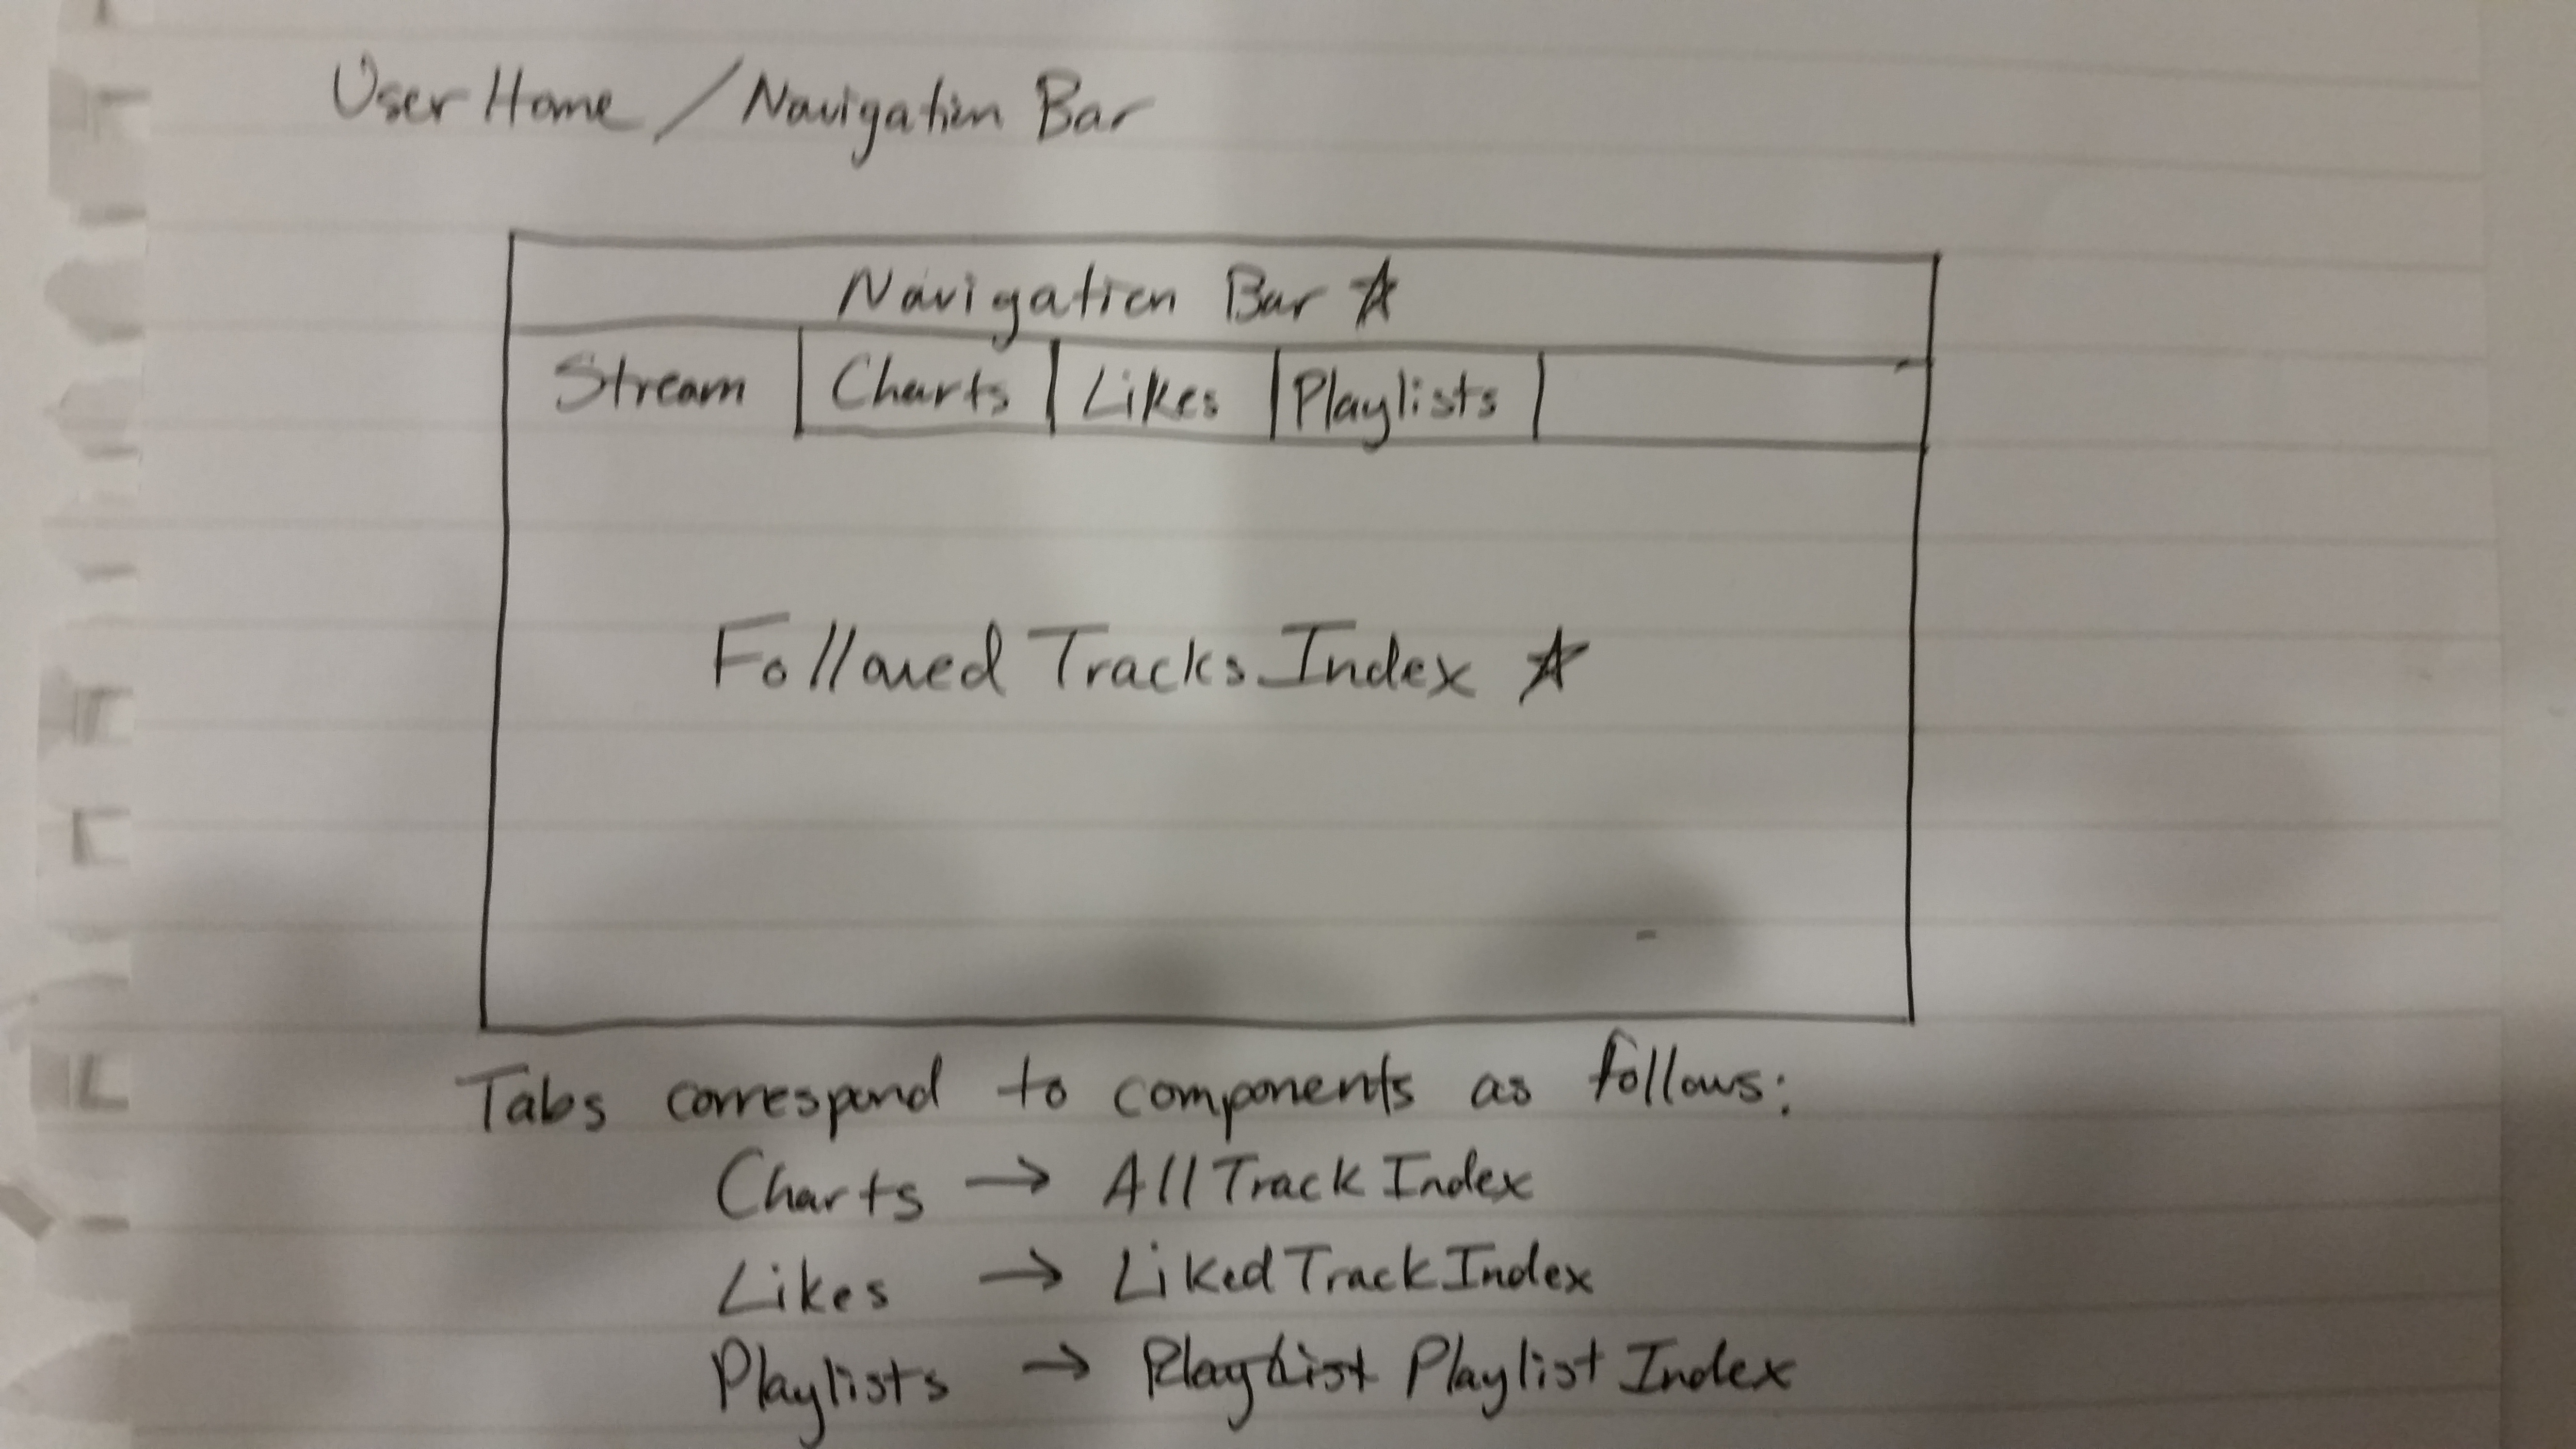 User Home / Navigation Bar
Navigation Bar ☆
Stream | Charts | Likes | Playlists |
Followed Tracks Index ☆
Tabs correspond to components as follows:
Charts → AllTrackIndex
Likes → LikedTrackIndex
Playlists → PlayList Playlist Index